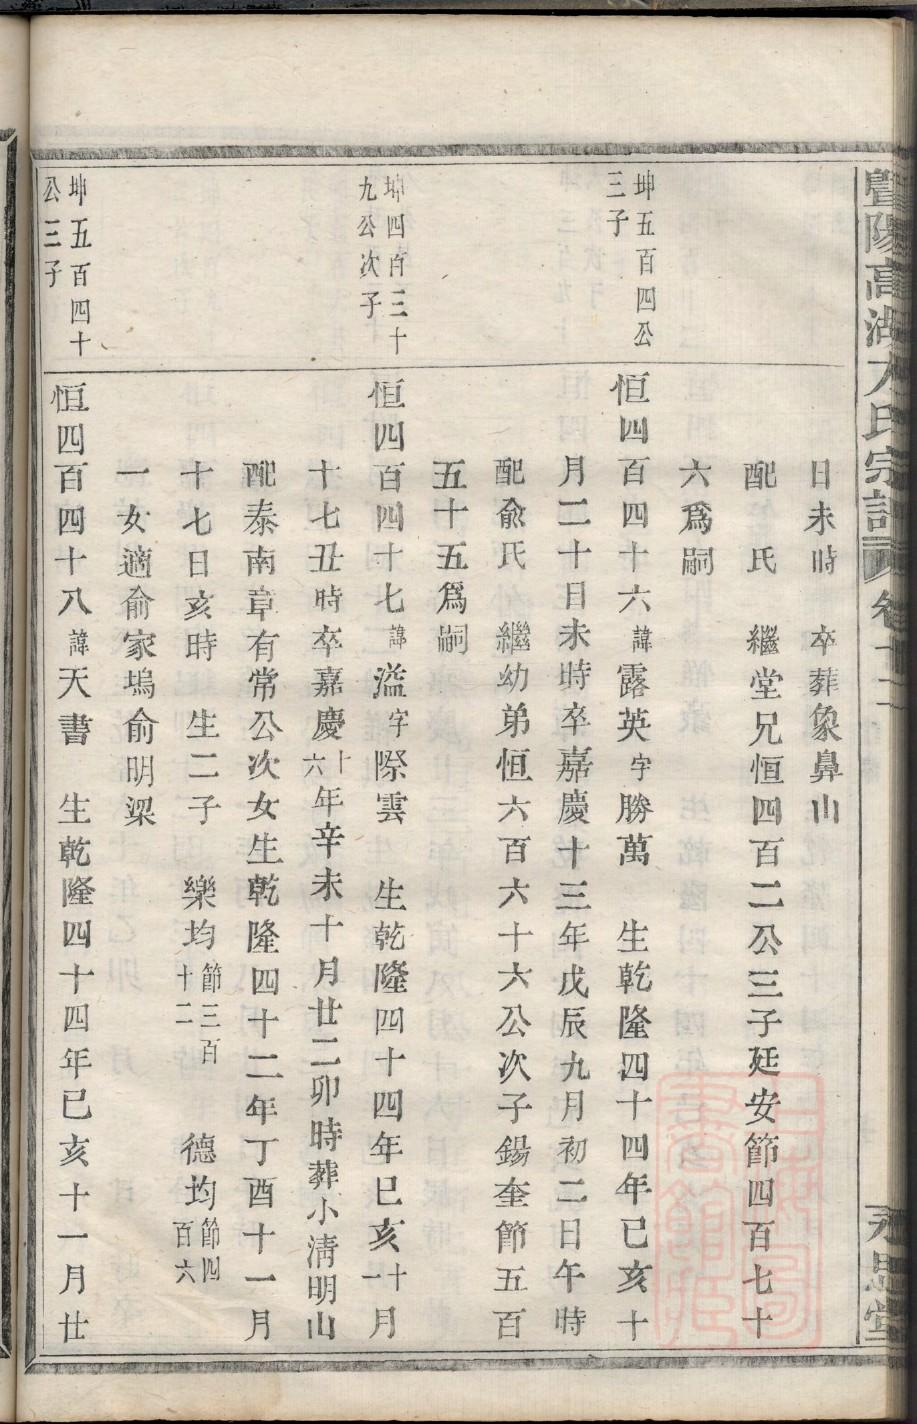 暨陽高湖方氏宗譜 卷十二
永思堂
日未時 卒葬象鼻山
配氏 繼堂兄恒四百二公三子廷安節四百七十
六爲嗣
坤五百四公
三子
恒四百四十六諱露英字勝萬 生乾隆四十四年已亥十
月二十日未時卒嘉慶十三年戊辰九月初二日午時
配俞氏 繼幼弟恒六百六十六公次子錫奎節五百
五十五爲嗣
坤四百三十
九公次子
恒四百四十七諱溢字際雲 生乾隆四十四年已亥十一月
十七丑時卒嘉慶十六年辛未十月廿二卯時葬小淸明山
配泰南章有常公次女生乾隆四十二年丁酉十一月
十七日亥時 生二子 樂均節三百十二 德均節四百六
一女適俞家塢俞明梁
坤五百四十
公三子
恒四百四十八諱天書 生乾隆四十四年已亥十一月廿